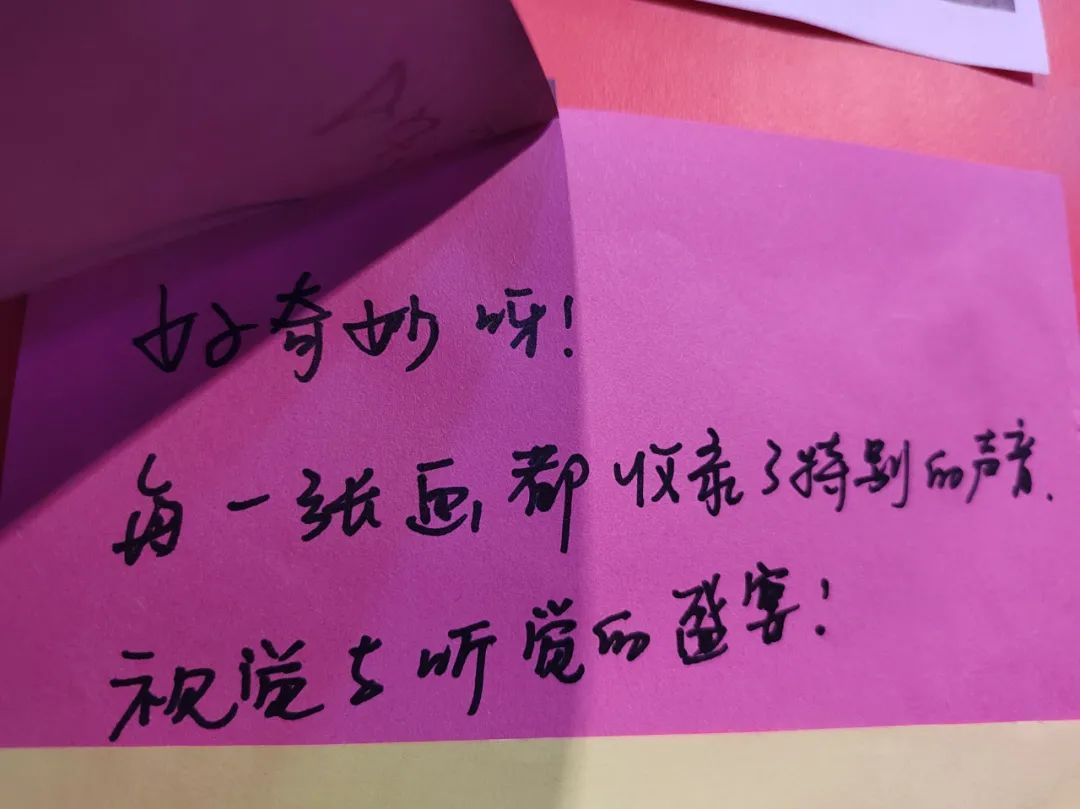 好奇妙呀!
每一张画都收录了特别的声音.
视觉与听觉的盛宴!